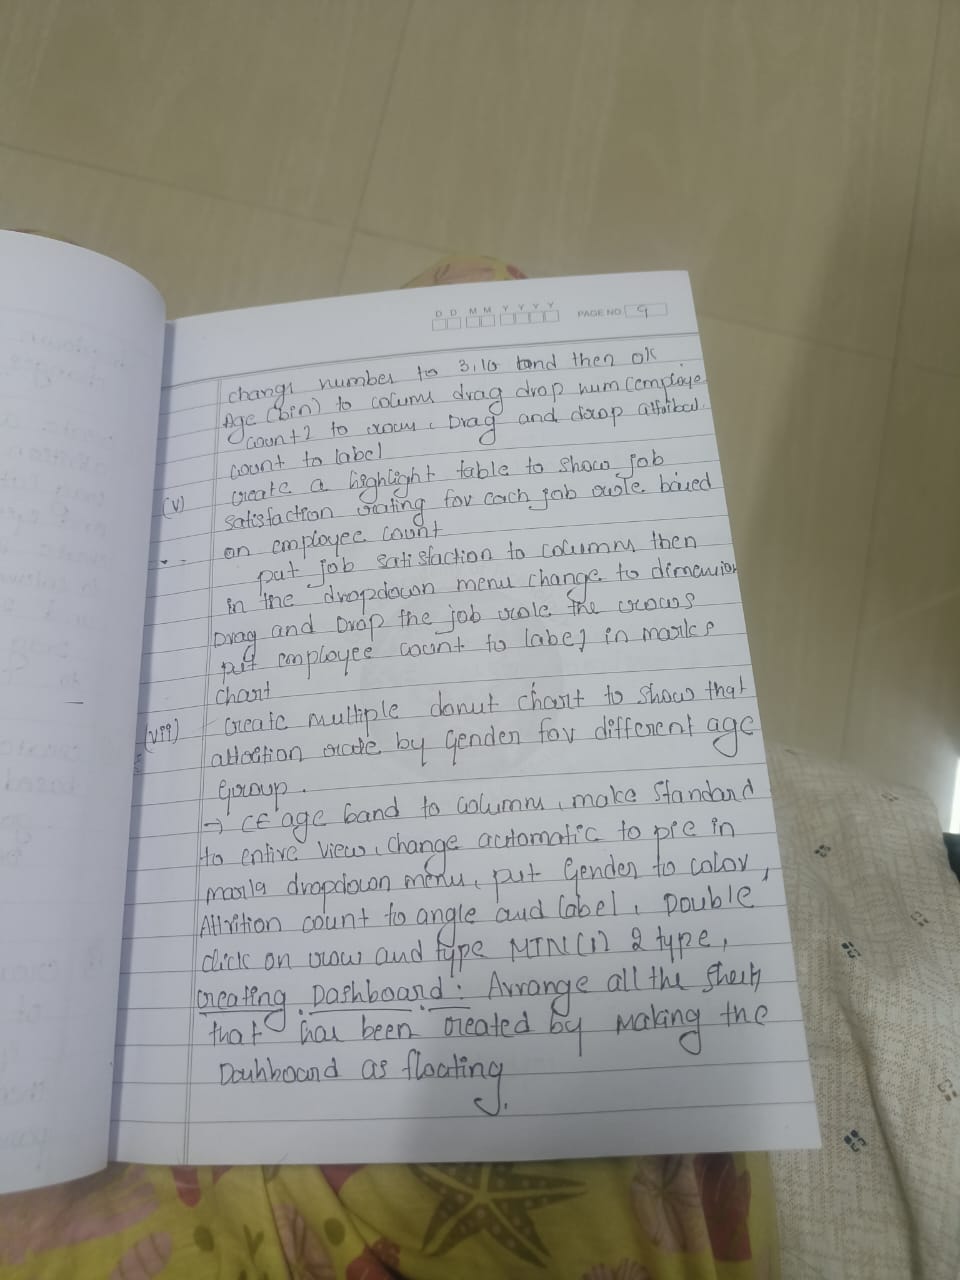 D D M M Y Y Y Y PAGE NO 9
change number to 3,10 and then ok
Age (bin) to column drag drop num (employe
count2 to row. Drag and drop
count to label
(v) create a highlight table to show job
satisfaction rating for each job role based
on employee count
put job satisfaction to columns then
in the dropdown menu change to dimension
Drag and Drop the job role the rows
put employee count to label in marks
chart
create multiple donut chart to show that
attrition rate by gender for different age
group.
→ age band to columns, make standard
to entire view, change automatic to pie in
dropdown menu, put Gender to color,
Attrition count to angle and label, Double
click on row and type MIN(1) 2 type,
creating Dashboard: Arrange all the sheets
that has been created by making the
Dashboard as floating.